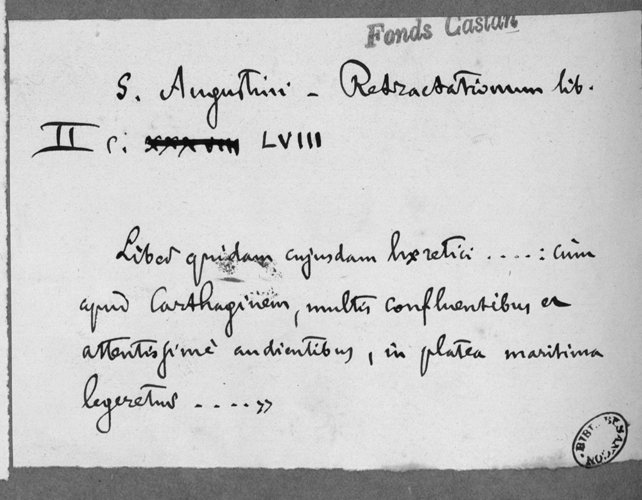 Fonds Castan
S. Augustini - Retractationum lib.
II c: XXXVIII LVIII
Liber quidam cujusdam hæretici ....: cùm
apud Carthaginem, multis confluentibus et
attentissimè audientibus, in platea maritima
legeretur ....»
BIBL. BESANÇON